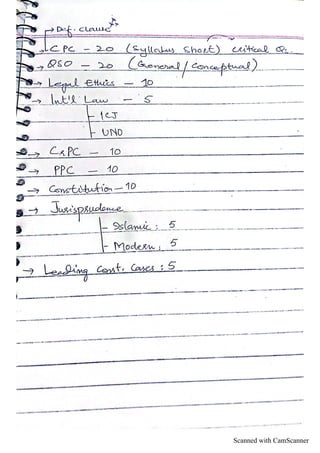 → Def. clause
→ CPC - 20 (Syllabus short) critical Q.
→ QSO - 20 (General / Conceptual)
→ Legal Ethics - 10
→ Int'l Law - 5
- ICJ
- UNO
→ CrPC - 10
→ PPC - 10
→ Constitution - 10
→ Jurisprudence
- Islamic : 5
- Modern : 5
→ Leading Const. Cases : 5
Scanned with CamScanner